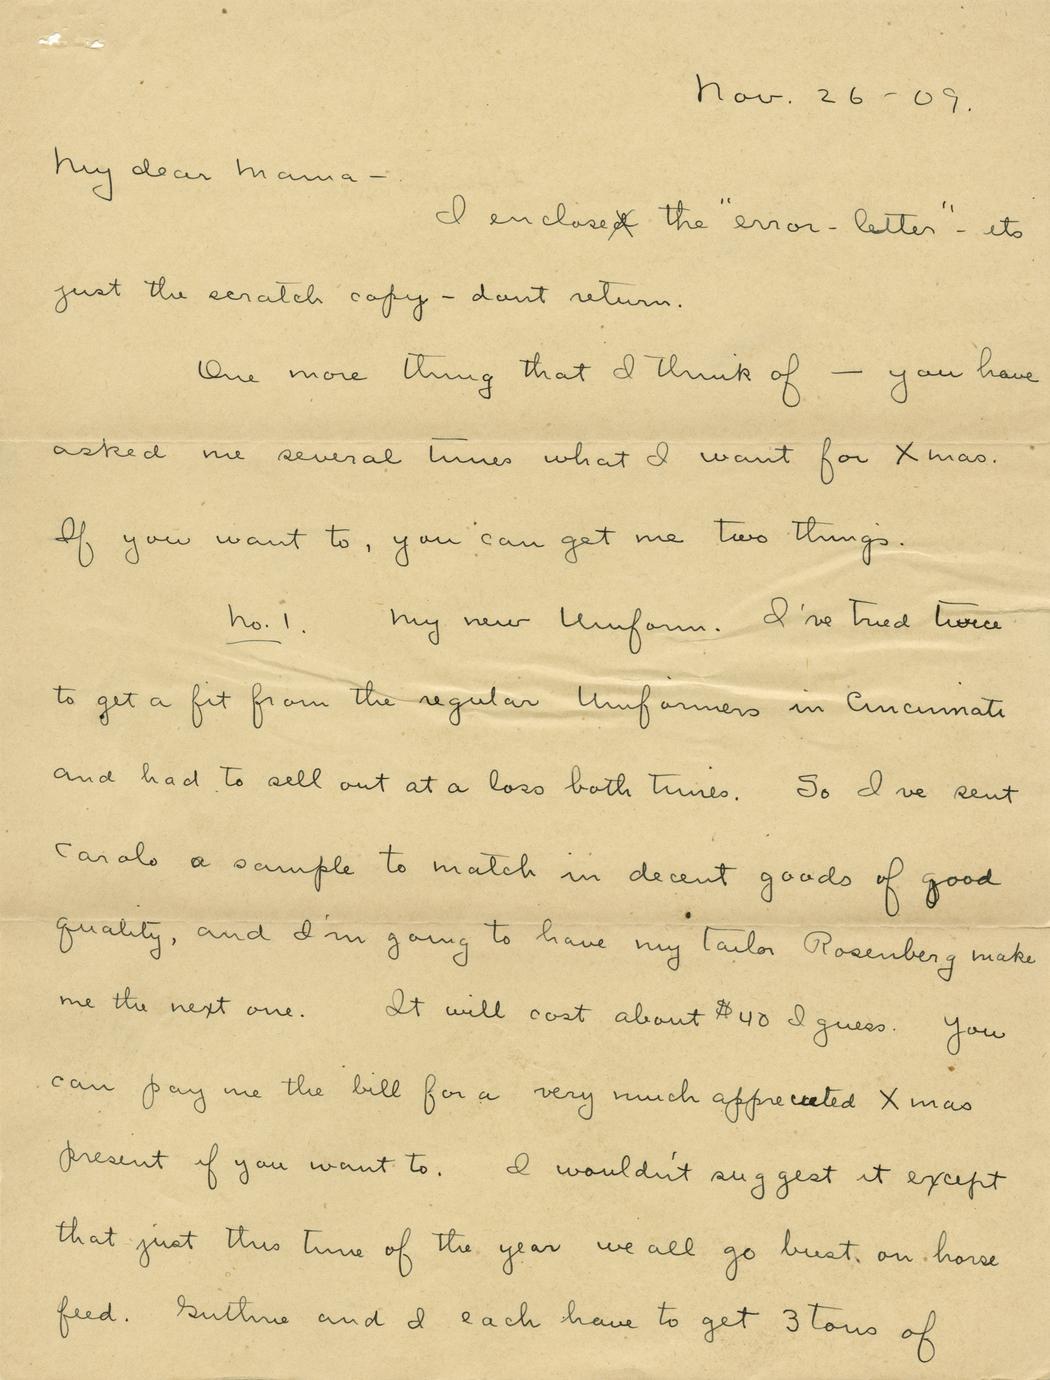 Nov. 26 - 09.
My dear Mama -
I enclose the "error - letter" - its
just the scratch copy - dont return.
One more thing that I think of — you have
asked me several times what I want for Xmas.
If you want to, you can get me two things.
No. 1. My new Uniform. I've tried twice
to get a fit from the regular Uniformers in Cincinnati
and had to sell out at a loss both times. So I've sent
Carolo a sample to match in decent goods of good
quality, and I'm going to have my tailor Rosenberg make
me the next one. It will cost about $40 I guess. You
can pay me the bill for a very much appreciated Xmas
present if you want to. I wouldn't suggest it except
that just this time of the year we all go bust on horse
feed. Guthrie and I each have to get 3 tons of